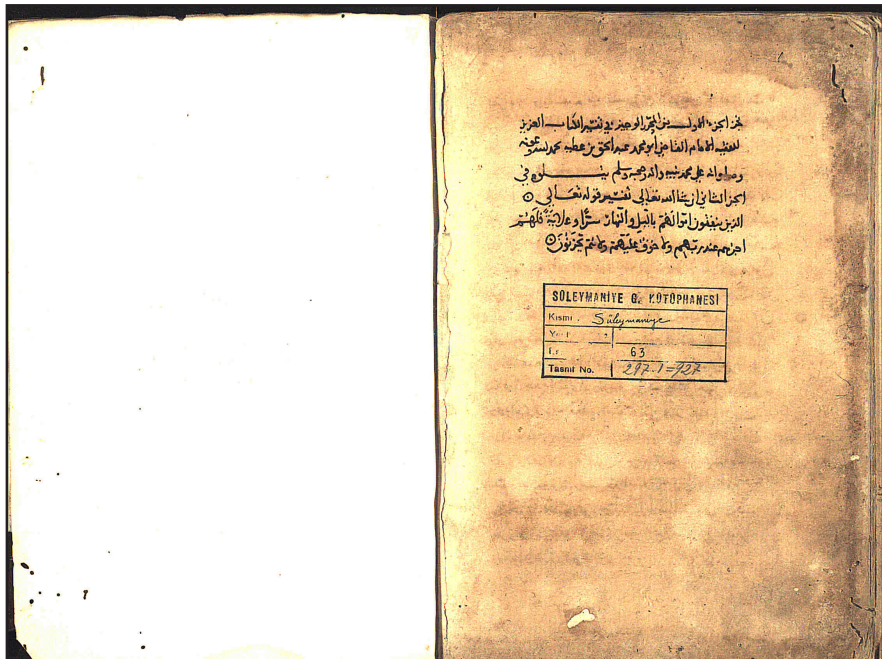 نجز الجزء الاول من المحرر الوجيز في تفسير الكتاب العزيز
للفقيه الامام القاضي ابو محمد عبد الحق بن عطيه بحمد الله وعونه
وصلواته على محمد نبيه واله وصحبه وسلم يتلوه في
الجزء الثاني ان شا الله تعالى تفسير قوله تعالى
الذين ينفقون اموالهم بالليل والنهار سرًّا وعلانيةً فلهم
اجرهم عند ربهم ولا خوف عليهم ولا هم يحزنون
SÜLEYMANİYE G. KÜTÜPHANESİ
Kısmı Süleymaniye
63
Tasnif No. 297.1=927